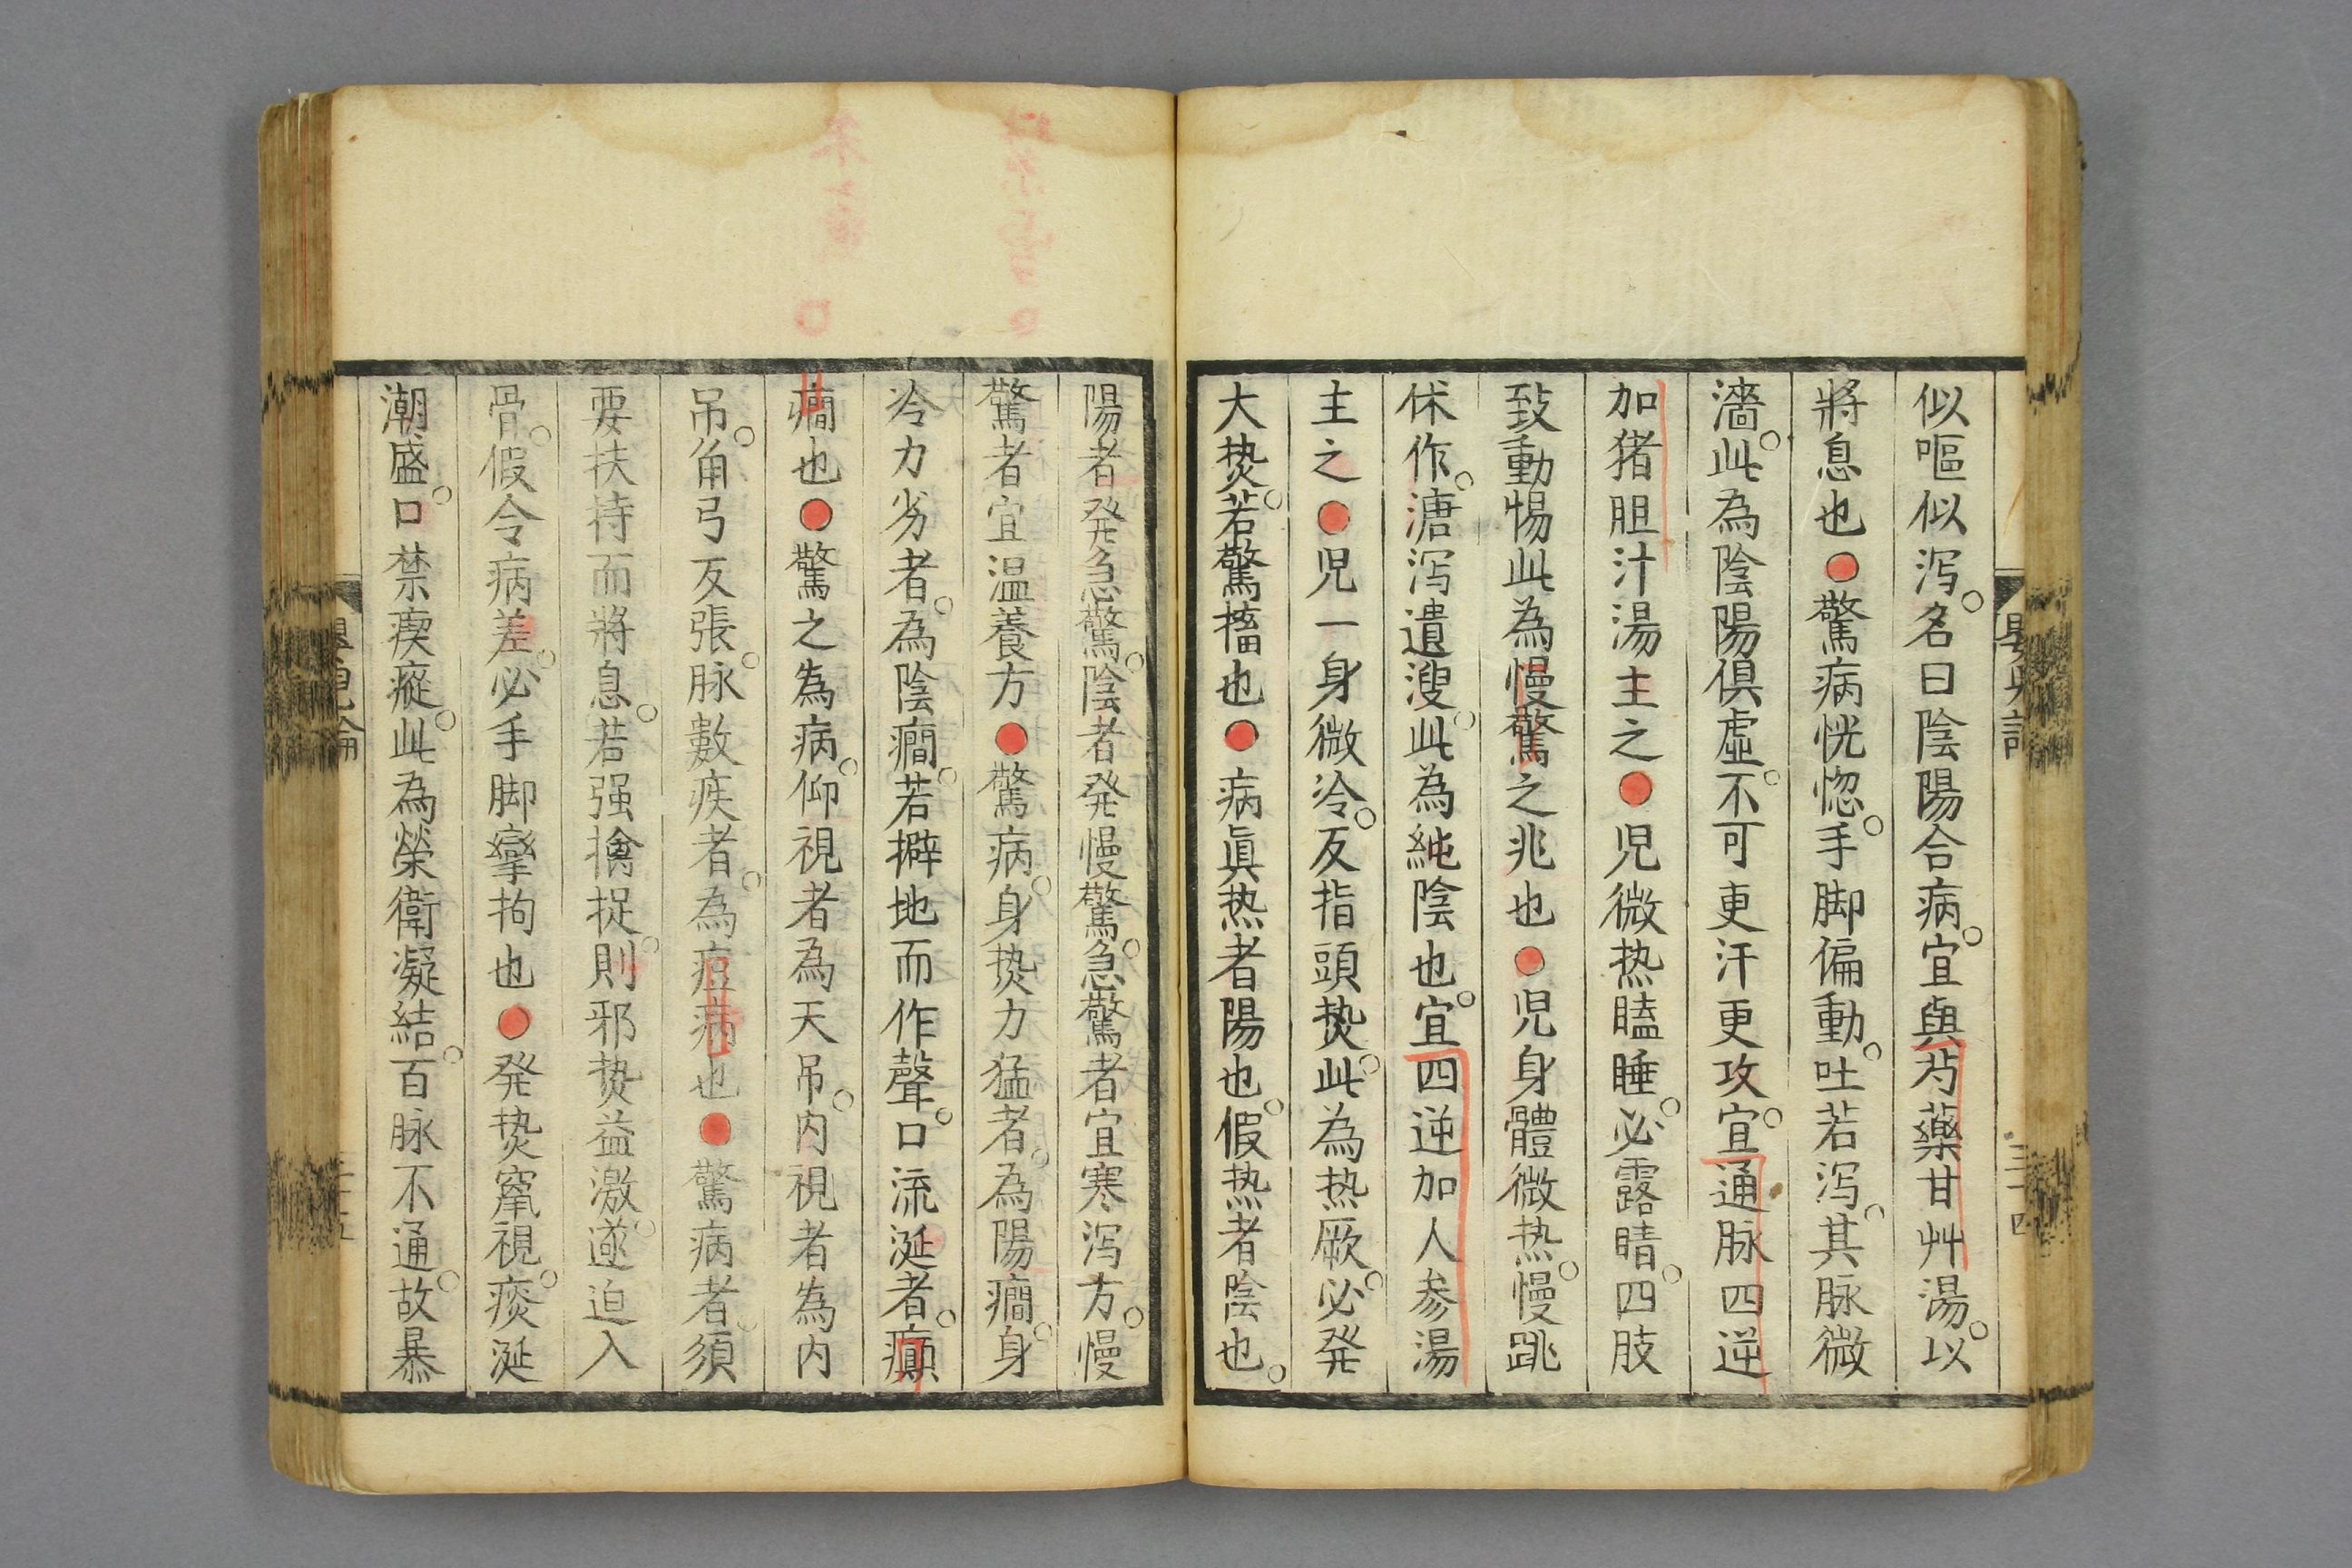 似嘔似泻。名曰陰陽合病。宜與芍藥甘艸湯。以
將息也●驚病恍惚。手脚偏動。吐若泻。其脉微
濇。此為陰陽俱虛。不可更汗更攻。宜通脉四逆
加猪胆汁湯主之●児微热瞌睡。必露睛。四肢
致動惕此為慢驚之兆也●児身體微热。慢跳
怵作。溏泻遺溲。此為純陰也。宜四逆加人参湯
主之●児一身微冷。反指頭热。此為热厥。必発
大热。若驚搐也●病眞热者陽也。假热者陰也。
陽者発急驚。陰者発慢驚。急驚者宜寒泻方。慢
驚者宜温養方●驚病。身热力猛者。為陽癇。身
冷力劣者。為陰癇。若擗地而作聲。口流涎者。癲
癇也●驚之為病。仰視者為天吊。内視者為内
吊。角弓反張。脉數疾者。為痙病也●驚病者。須
要扶持而將息。若强擒捉。則邪热益激。遂迫入
骨。假令病差。必手脚攣拘也●発热竄視。痰涎
潮盛。口禁瘈瘲。此為榮衛凝結。百脉不通。故暴